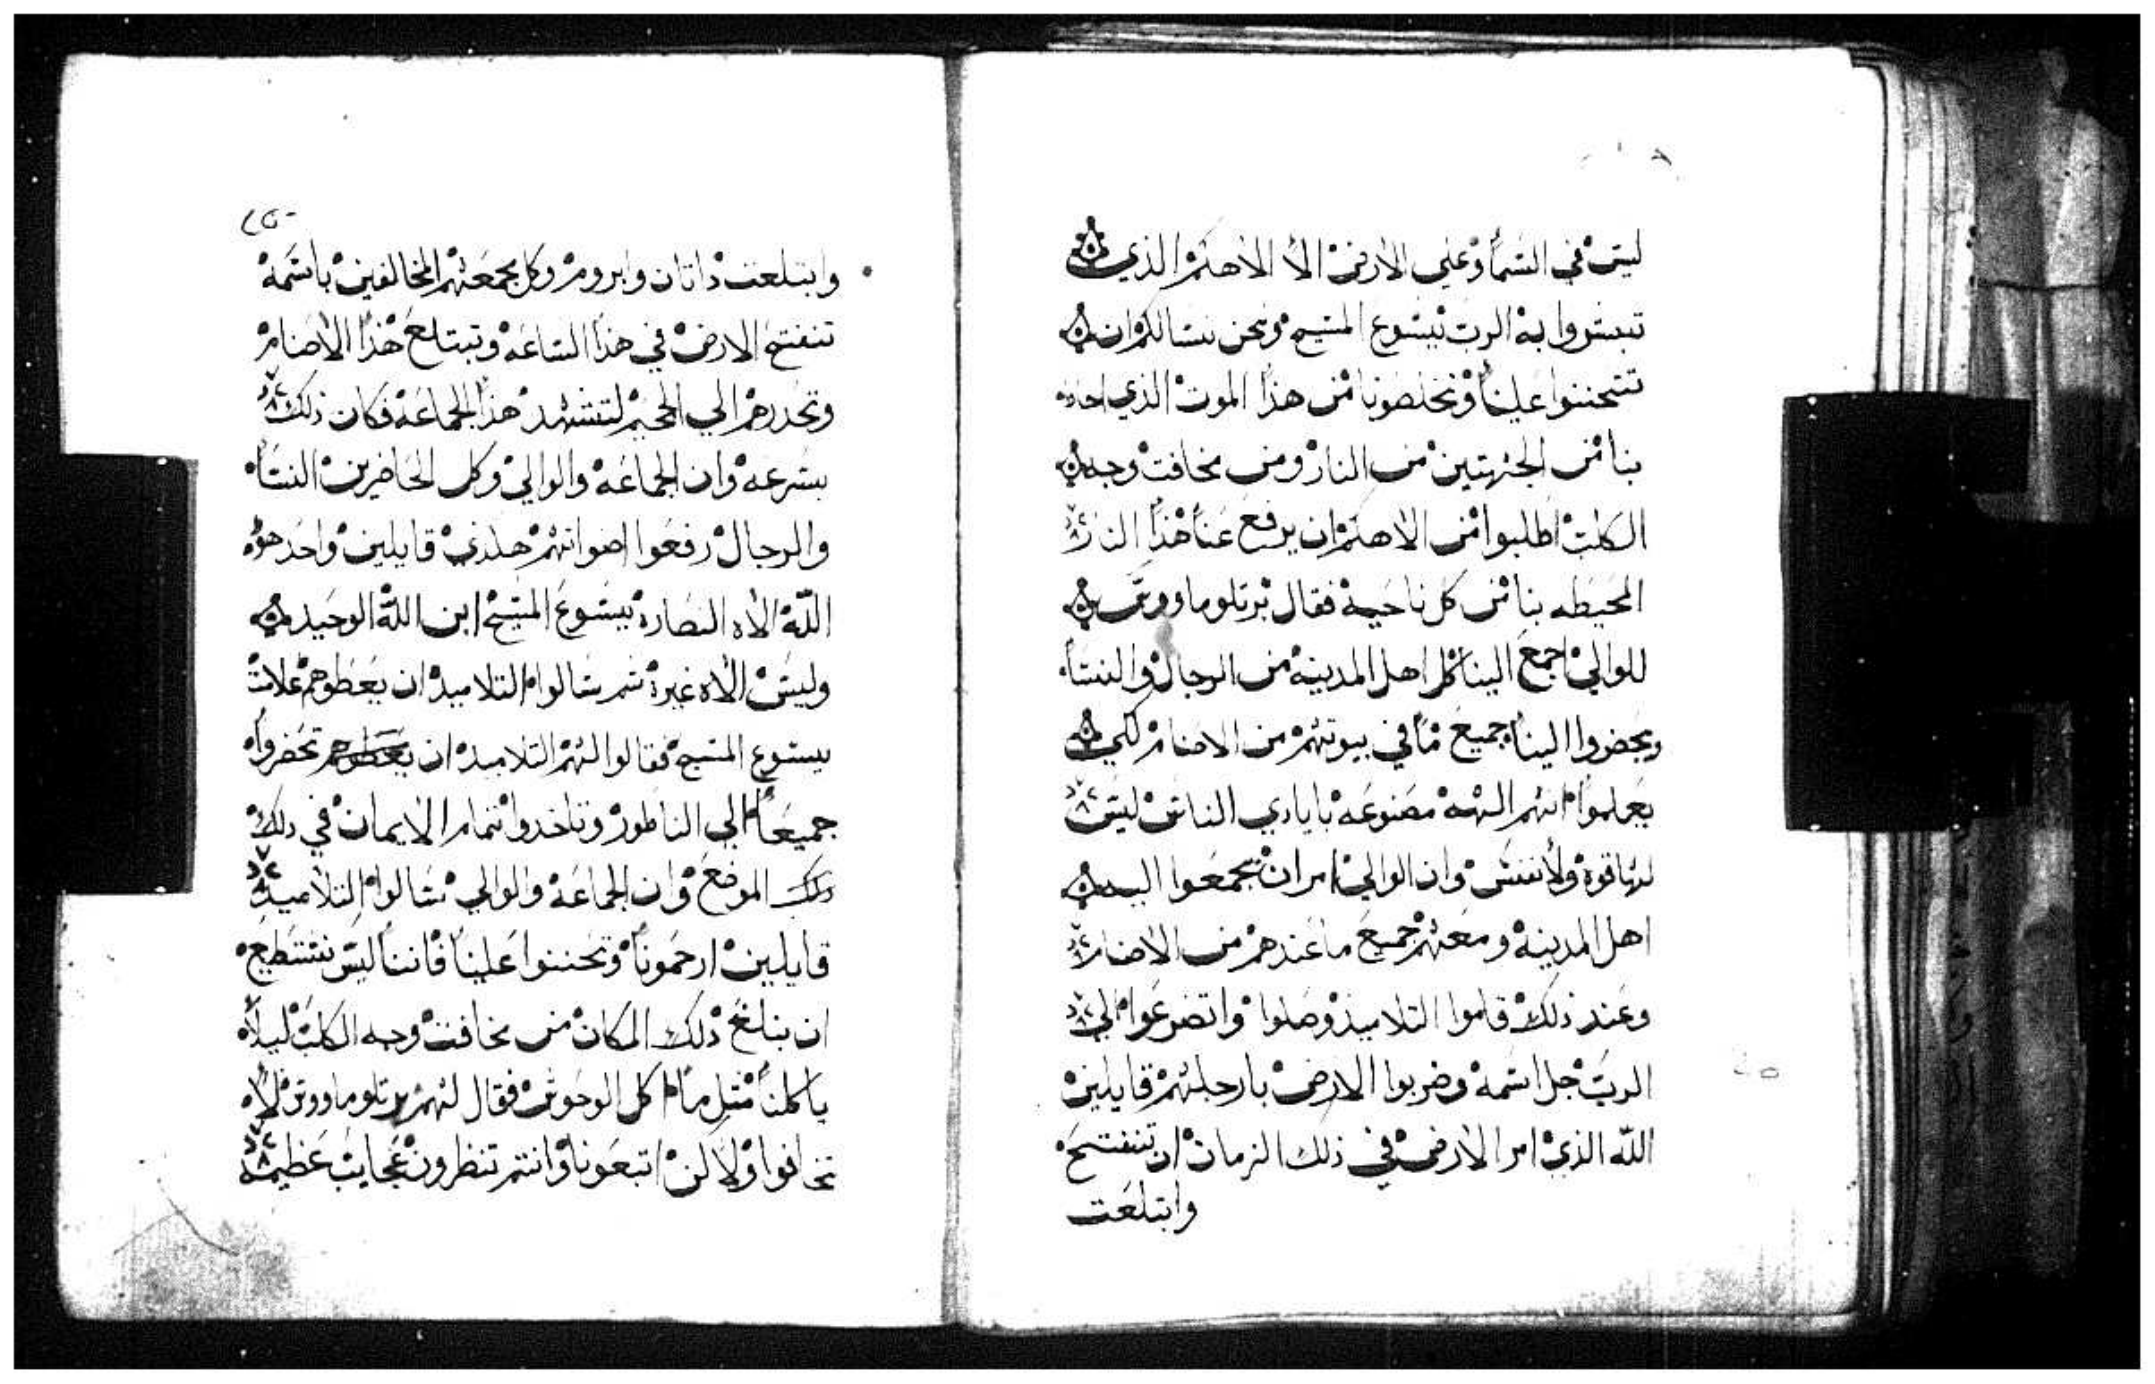 ليس في السما وعلي الارض الا الاهكم الذي
تبشروا به الرب يسوع المسيح ونحن نسالكم ان
تتحننوا علينا وتخلصونا من هذا الموت الذي احاد
بنا من الجهتين من النار ومن مخافت وجه
الكلب اطلبوا من الاهكم ان يرفع عنا هذا النار
المحيطه بنا من كل ناحية فقال برتلوماووس
للوالي اجمع الينا كل اهل المدينه من الرجال والنسا
ويحضروا الينا جميع ما في بيوتهم من الاصنام لكي
يعلموا انهم الهه مصنوعه بايادي الناس ليس
لها قوة ولا نفس وان الوالي امر ان تجمعوا اليه
اهل المدينة ومعهم جميع ما عندهم من الاصنام
وعند ذلك قاموا التلاميذ وصلوا واتضرعوا الي
الرب جل اسمه وضربوا الارض بارجلهم قايلين
الله الذي امر الارض في ذلك الزمان ان تنفتح
وابتلعت
وابتلعت داتان وابروم وكل مجمعهم المخالفين باسمه
تنفتح الارض في هذا الساعه وتبتلع هذا الاصنام
وتحدرهم الي الجحيم لتشهد هذا الجماعه فكان ذلك
بسرعه وان الجماعه والوالي وكل الحاضرين النسا
والرجال رفعوا اصواتهم هكذي قايلين واحد هو
الله الاه النصاره يسوع المسيح ابن الله الوحيد
وليس الاه غيرة ثم سالوا التلاميد ان يعطوهم علامت
يسوع المسيح فقالوا لهم التلاميد ان يعطوهم تحضروا
جميعا الي الناطور وتاخدوا تمام الايمان في دلك
دلك الموضع وان الجماعه والوالي سالوا التلاميد
قايلين ارحمونا وتحننوا علينا فاننا ليس نستطيع
ان نبلغ دلك المكان من مخافت وجه الكلب ليلا
ياكلنا مثل ما اكل الوحوش فقال لهم برتلوماووس لا
تخافوا ولاكن اتبعونا وانتم تنظرون عجايب عظيمه